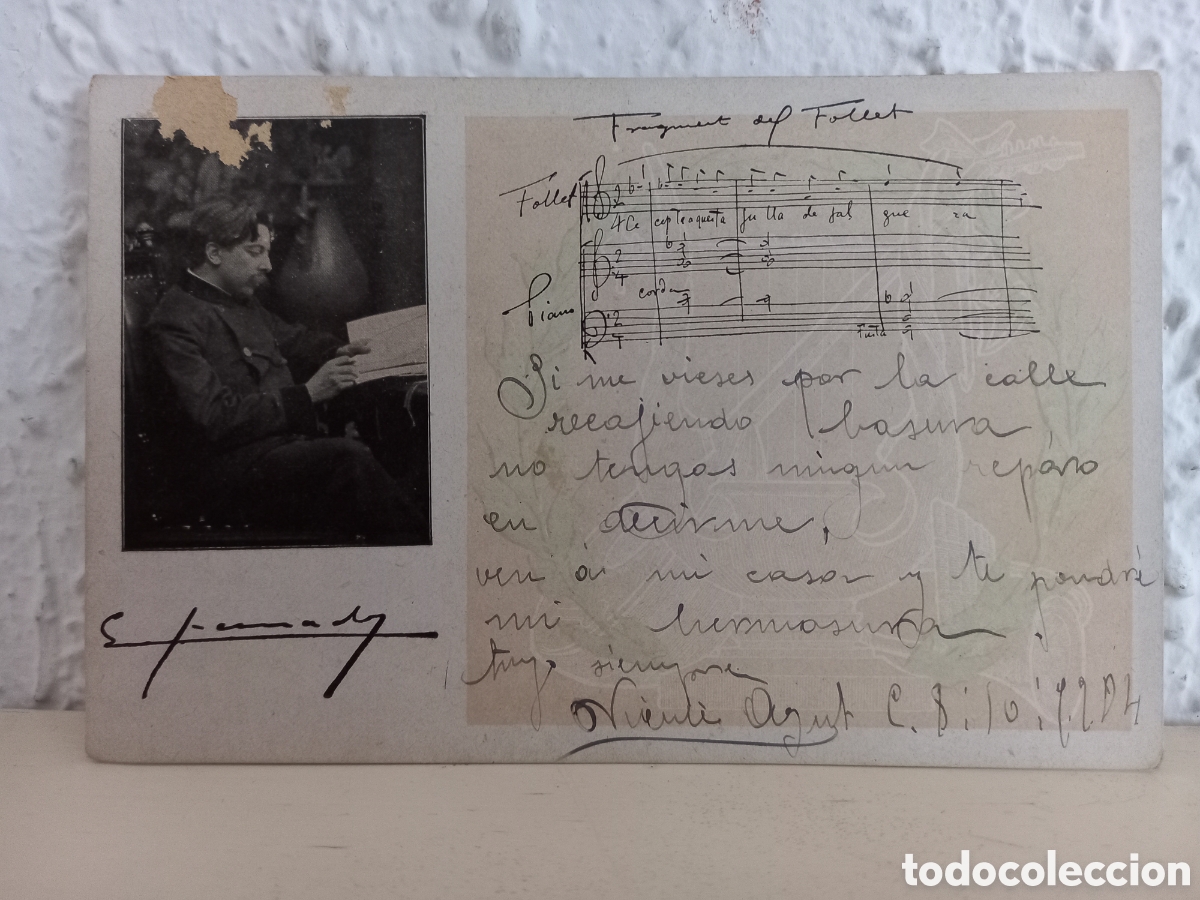 Fragment del Follet
Follet
fulla de fal gue ra
corda
Piano
E Granados
Si me vieses por la calle
recojiendo basura
no tengas ningun reparo
en decirme,
ven á mi casa y te pondré
mi hermosura.
tuyo siempre
Vicente Agut C. 8:10:1904
todocoleccion